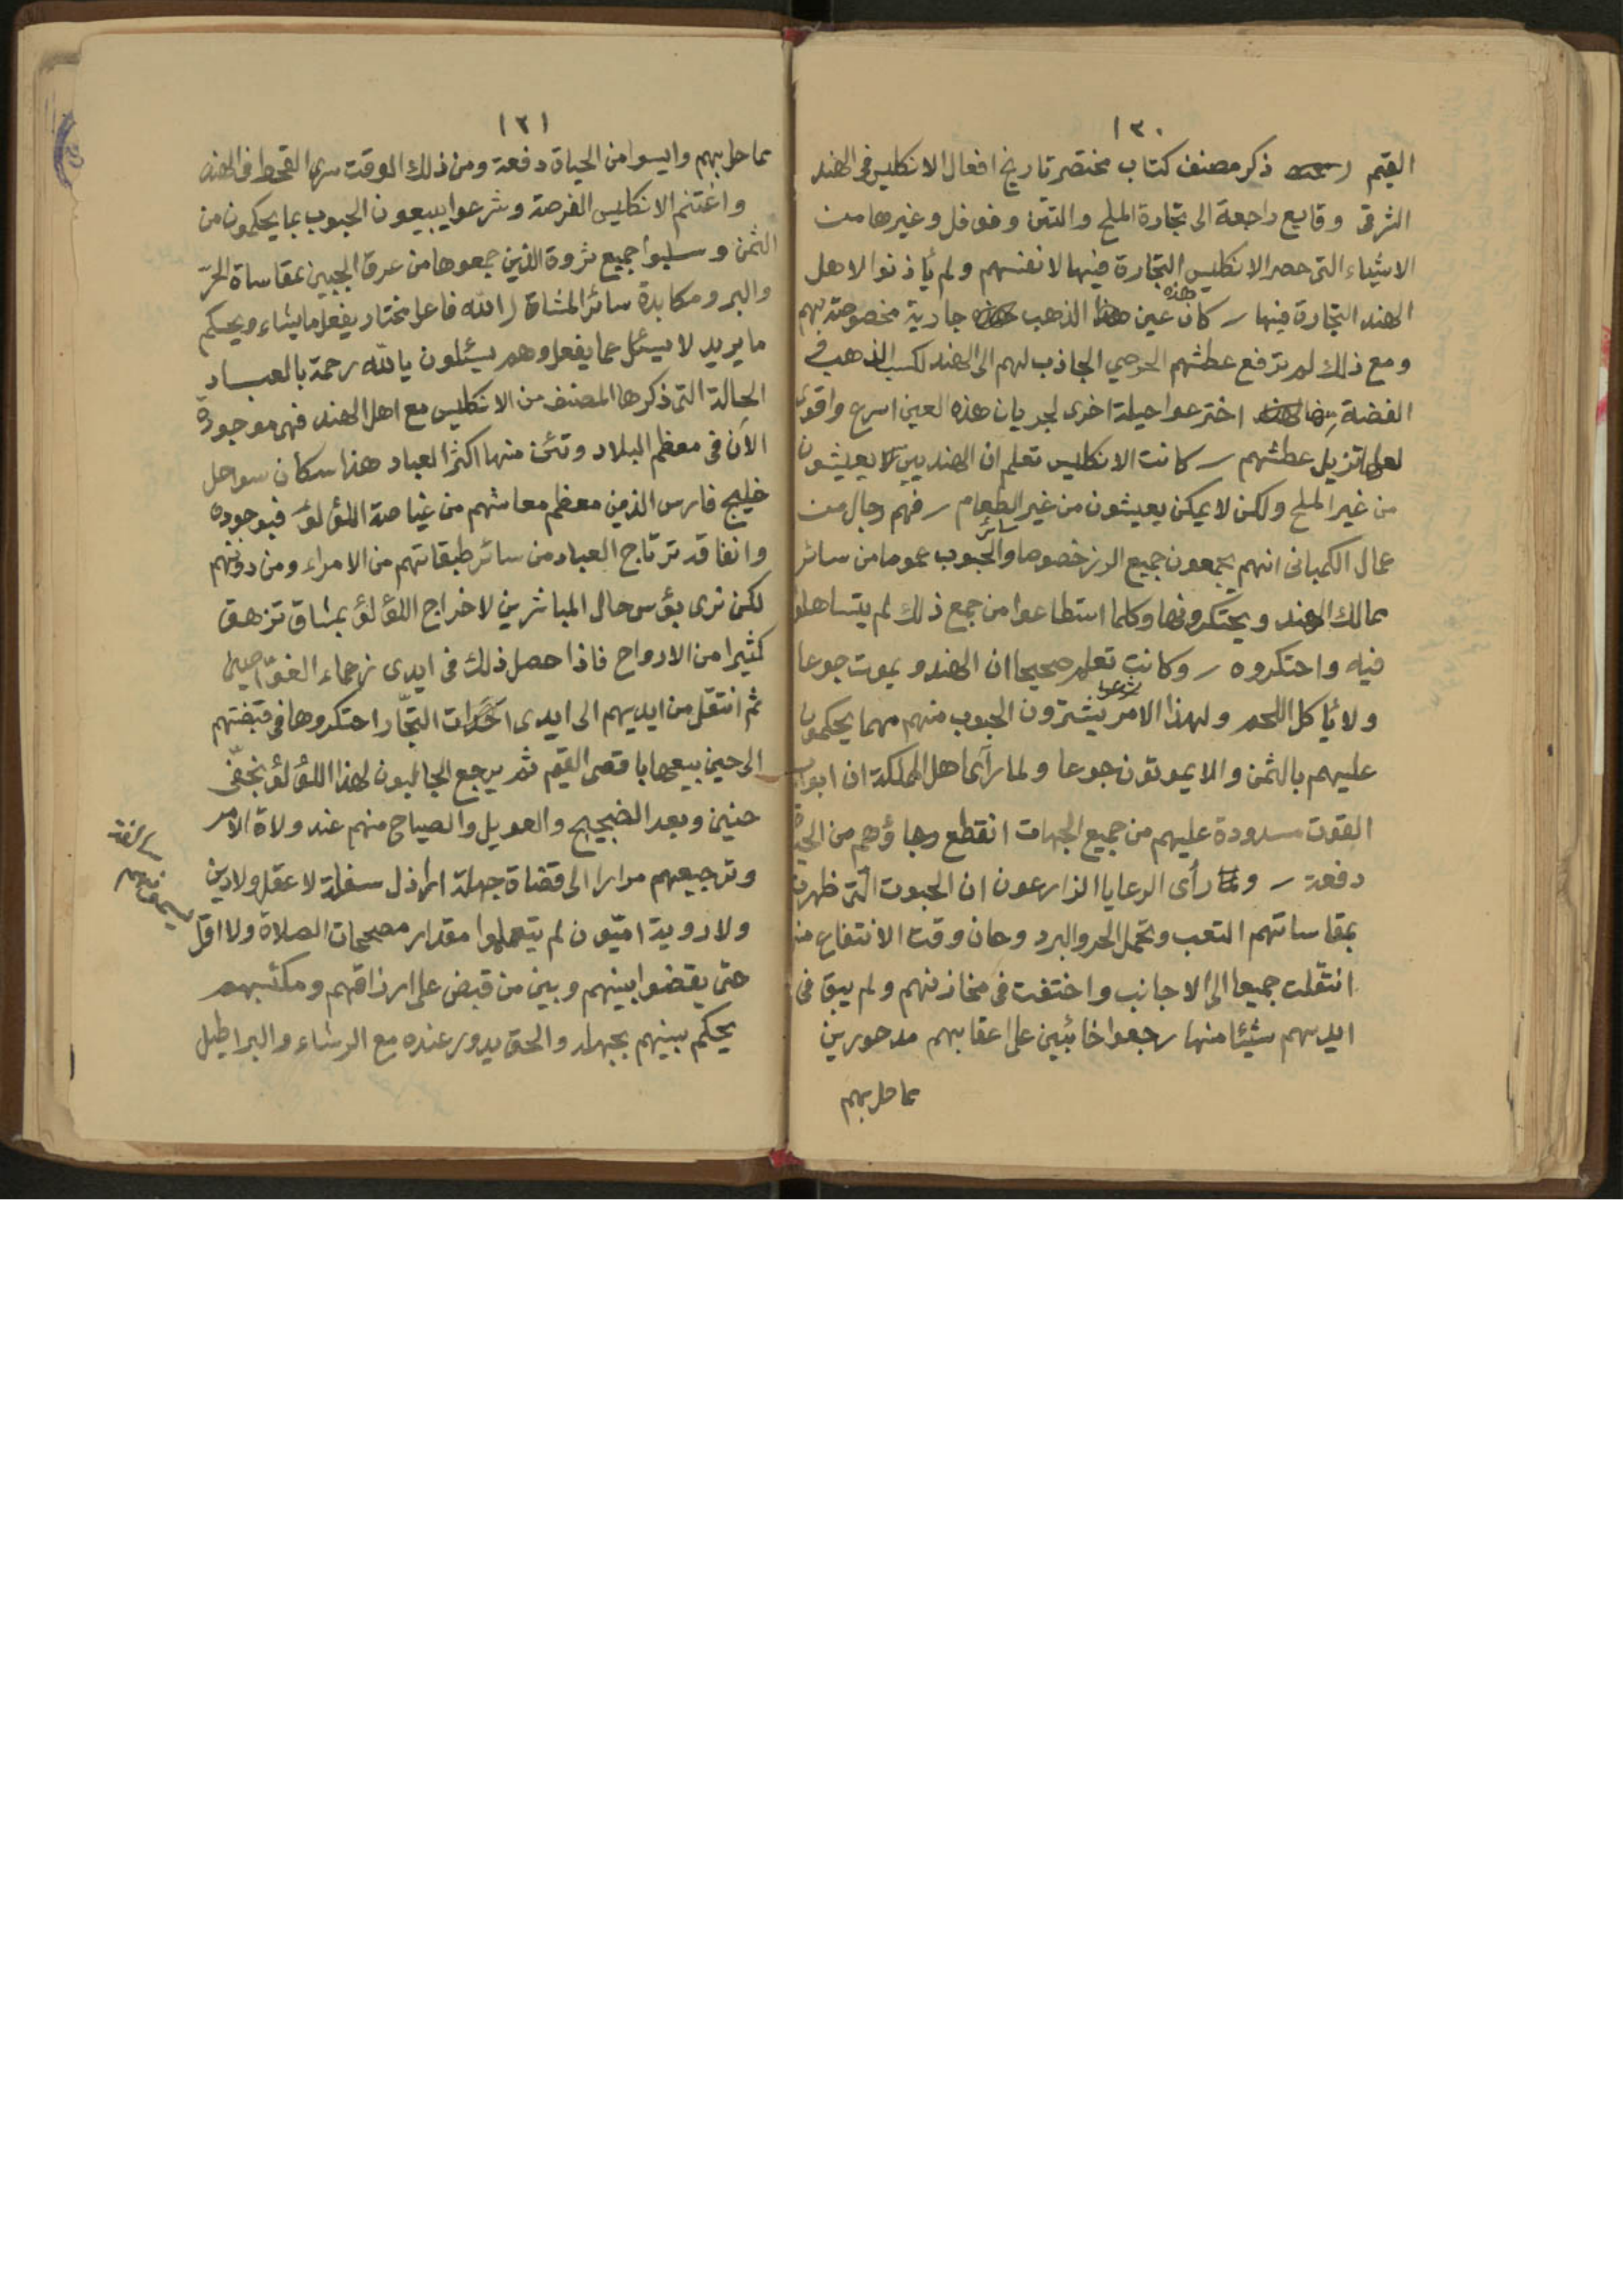 ١٢٠
القيم ذكر مصنف كتاب مختصر تاريخ افعال الانكليس في الهند
الشرقي وقايع راجعة الى تجارة الملح والتتن وفوفل وغيرها من
الاشياء التي حصر الانكليس التجارة فيها لانفسهم ولم يأذنوا لاهل
الهند التجارة فيها ر كان عين هذه الذهب جارية مخصوصة بهم
ومع ذلك لم ترفع عطشهم الحرصي الجاذب لهم الى الهند لكسب الذهب و
الفضة اخترعوا حيلة اخرى لجريان هذه العين اسرع واقوى
لعلها تزيل عطشهم ر كانت الانكليس تعلم ان الهنديين لا يعيشون
من غير الملح ولكن لا يمكن يعيشون من غير الطعام ر فهم رجال من
عمال الكمپاني انهم يجمعون جميع الرز خصوصا وسائر الحبوب عموما من سائر
ممالك الهند ويحتكرونها وكلما استطاعوا من جمع ذلك لم يتساهلوا
فيه واحتكروه ر وكانت تعلم صحيحا ان الهندو يموت جوعا
ولا يأكل اللحم ولهذا الامر يشترون الحبوب منهم مهما يحكمون
عليهم بالثمن والا يموتون جوعا ولما رآى اهل المملكة ان ابواب
القوت مسدودة عليهم من جميع الجهات انقطع رجاؤهم من
دفعة ر ولما رأى الرعايا الزارعون ان الحبوت التي ظهرت
بمقاساتهم التعب وتحمل الحر والبرد وحان وقت الانتفاع منها
انتقلت جميعا الى الاجانب واختفت في مخازنهم ولم يبق في
ايديهم شيئا منها رجعوا خائبين على اعقابهم مدحورين
مما حل بهم
١٢١
مما حل بهم وايسوا من الحياة دفعة ومن ذلك الوقت سرى القحط في الهند
واغتنم الانكليس الفرصة وشرعوا يبيعون الحبوب بما يحكمون من
الثمن وسلبوا جميع ثروة الذين جمعوها من عرق الجبين بمقاساة الحرّ
والبر ومكابدة سائر المشاة ر الله فاعل مختار يفعل ما يشاء ويحكم
ما يريد لا يسئل عما يفعل وهم يسئلون يا لله رحمة بالعباد
الحالة التي ذكرها المصنف من الانكليس مع اهل الهند فهي موجودة
الآن في معظم البلاد وتئن منها اكثر العباد هذا سكان سواحل
خليج فارس الذين معظم معاشهم من غياصة اللؤلؤ فبوجوده
وانفاقه ترتاح العباد من سائر طبقاتهم من الامراء ومن دونهم
لكن نرى بؤس حال المباشرين لاخراج اللؤلؤ بمشاق تزهق
كثيرا من الارواح فاذا حصل ذلك في ايدى زعماء الغوّاصين
ثم انتقل من ايديهم الى ايدى التجّار احتكروها في قبضتهم
الى حين بيعها باقصى القيم ثم يرجع الجالبون لهذا اللؤلؤ بخفّي
حنين وبعد الضجيج والعويل والصياح منهم عند ولاة الامر
وترجيعهم مرارا الى قضاة جهلة اراذل سفلة لا عقل ولا دين
ولا روية اميّون لم يتعلموا مقدار مصححات الصلاة ولا اقل
حتى يقضوا بينهم وبين من قبض على ارزاقهم ومكتسبهم
يحكم بينهم بجهله والحق يدور عنده مع الرشاء والبراطيل